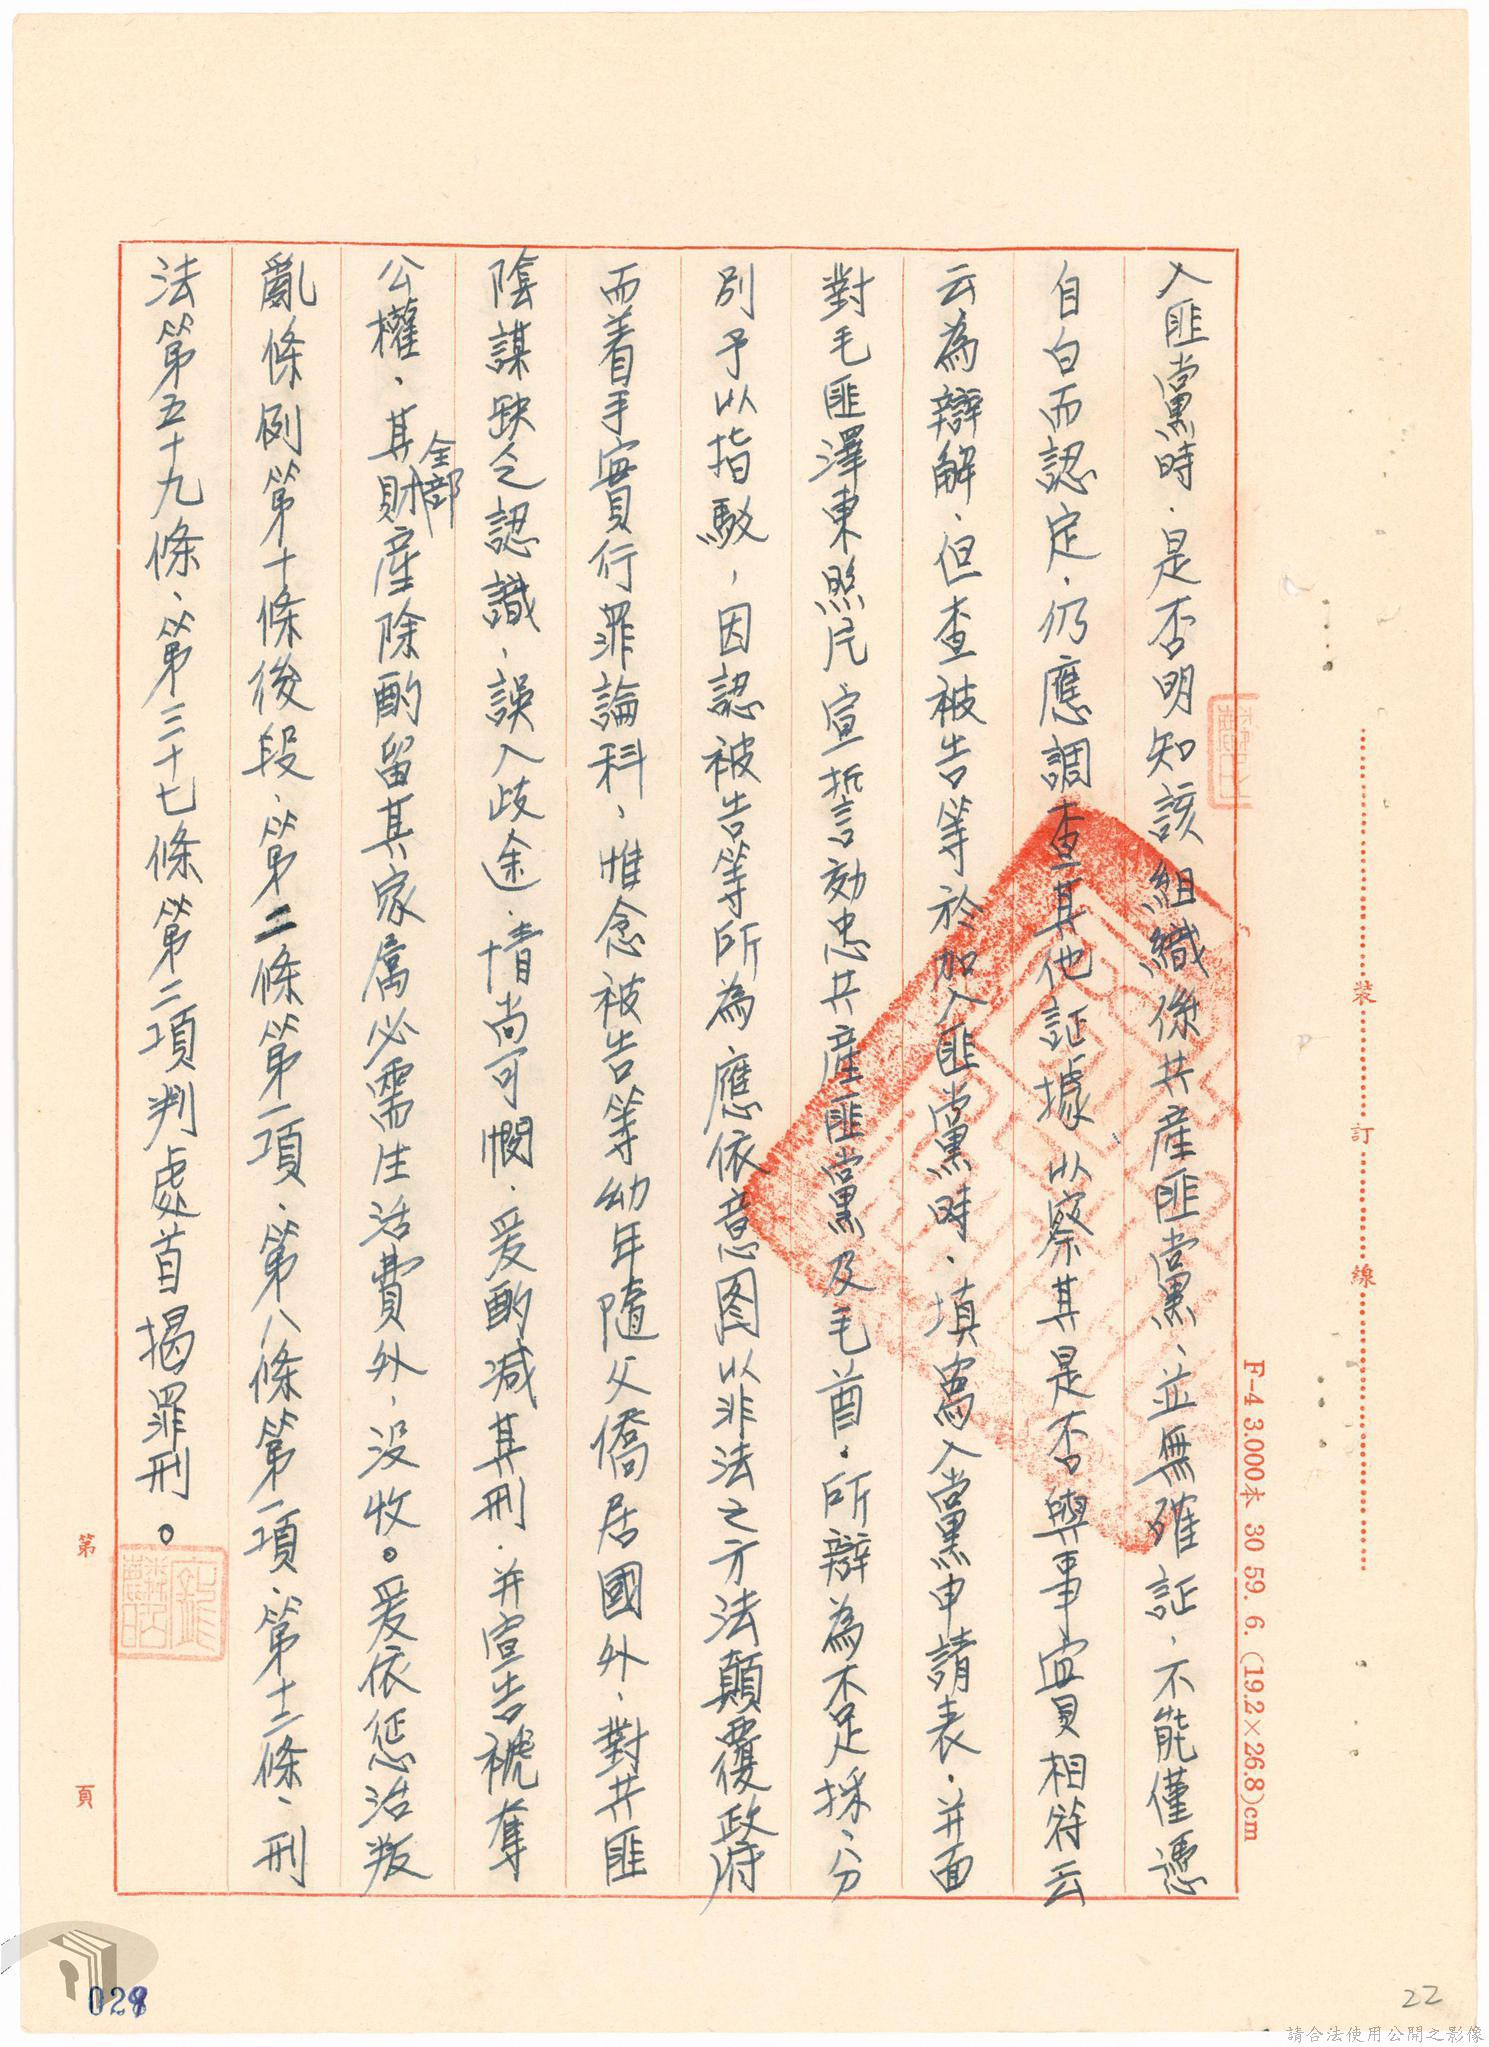 入匪黨時，是否明知該組織係共產匪黨，並無確証，不能僅憑
自白而認定，仍應調查其他証據以察其是否與事實相符云
云為辯解，但查被告等於加入匪黨時，填寫入黨申請表，并面
對毛匪澤東照片宣誓効忠共產匪黨及毛酋。所辯為不足採，分
別予以指駁，因認被告等所為應依意图以非法之方法顛覆政府
而着手實行罪論科，惟念被告等幼年隨父僑居國外，對共匪
陰謀缺乏認識，誤入歧途，情尚可憫，爰酌減其刑，并宣告褫奪
公權，其全部財產除酌留其家屬必需生活費外，没收。爰依惩治叛
亂條例第十條後段，第二條第一項，第八條第一項，第十二條，刑
法第五十九條，第三十七條第二項判處首揭罪刑。
裝
訂
線
F-4 3.000本 30 59. 6. (19.2×26.8)cm
第
頁
029
22
請合法使用公開之影像